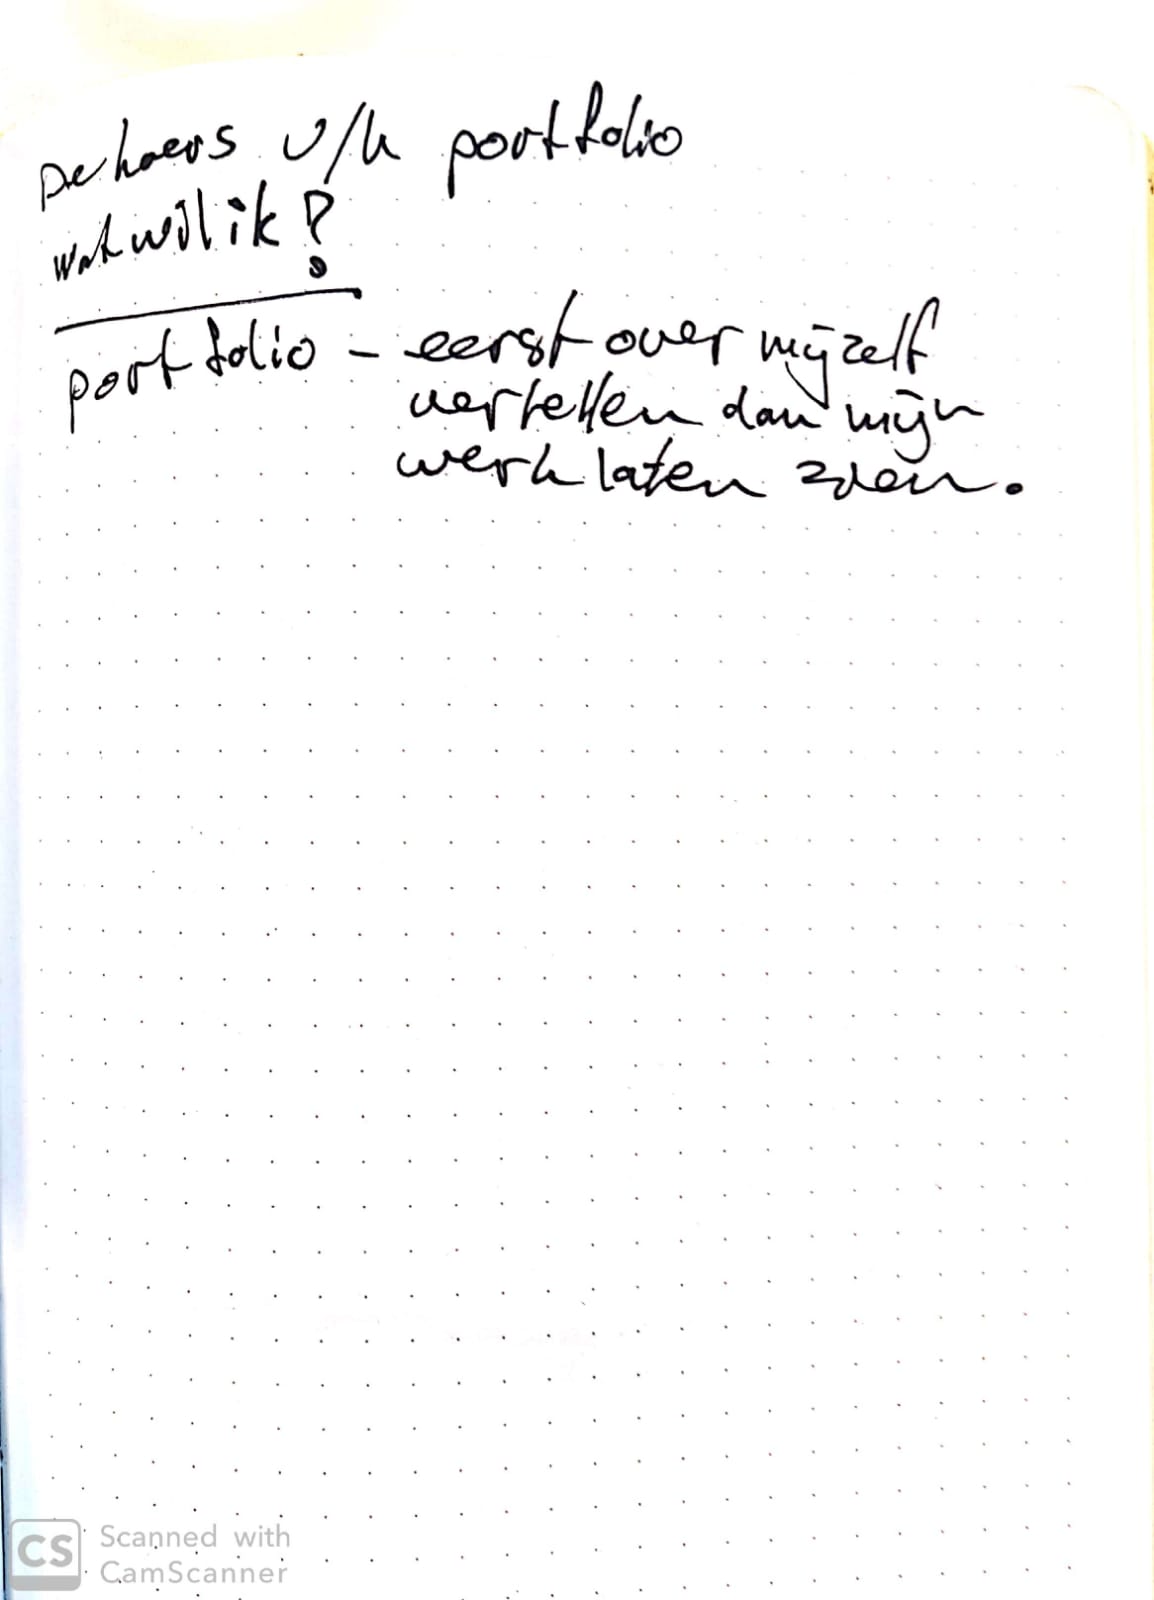 v/h portfolio
wat wil ik?
portfolio - eerst over mijzelf
vertellen dan mijn
werk laten zien.
CS Scanned with
CamScanner